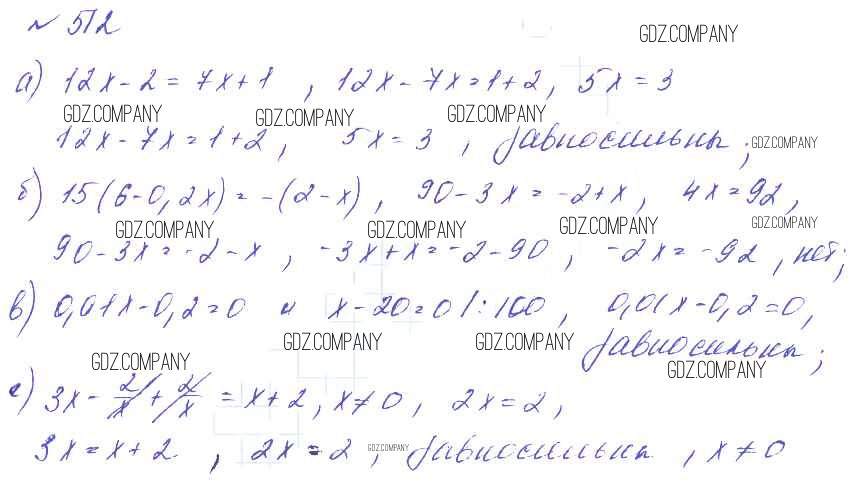 № 512
GDZ.COMPANY
а) 12x - 2 = 7x + 1 , 12x - 7x = 1 + 2, 5x = 3
GDZ.COMPANY GDZ.COMPANY GDZ.COMPANY
12x - 7x = 1 + 2, 5x = 3 , равносильны ; GDZ.COMPANY
б) 15(6 - 0,2x) = -(2 - x) , 90 - 3x = -2 + x, 4x = 92,
GDZ.COMPANY GDZ.COMPANY GDZ.COMPANY GDZ.COMPANY
90 - 3x = -2 - x , -3x + x = -2 - 90 , -2x = -92 , нет;
в) 0,01x - 0,2 = 0 и x - 20 = 0 / : 100 , 0,01x - 0,2 = 0,
GDZ.COMPANY GDZ.COMPANY равносильны ;
GDZ.COMPANY GDZ.COMPANY
г) 3x - 2/x + 2/x = x + 2 , x ≠ 0 , 2x = 2 ,
3x = x + 2 , 2x = 2 , GDZ.COMPANY равносильны , x ≠ 0